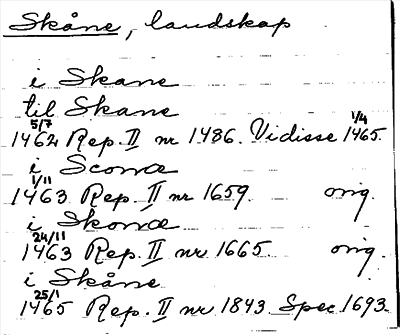 Skåne, landskap
i Skane
til Skane
5/7 1/4
1462 Rep. II nr 1486. Vidisse 1465.
i Sconæ
1/11
1463 Rep. II nr 1659. orig.
i Skonæ
24/11
1463 Rep. II nr 1665 orig.
i Skåne
25/1
1465 Rep. II nr 1843 Spec 1693.